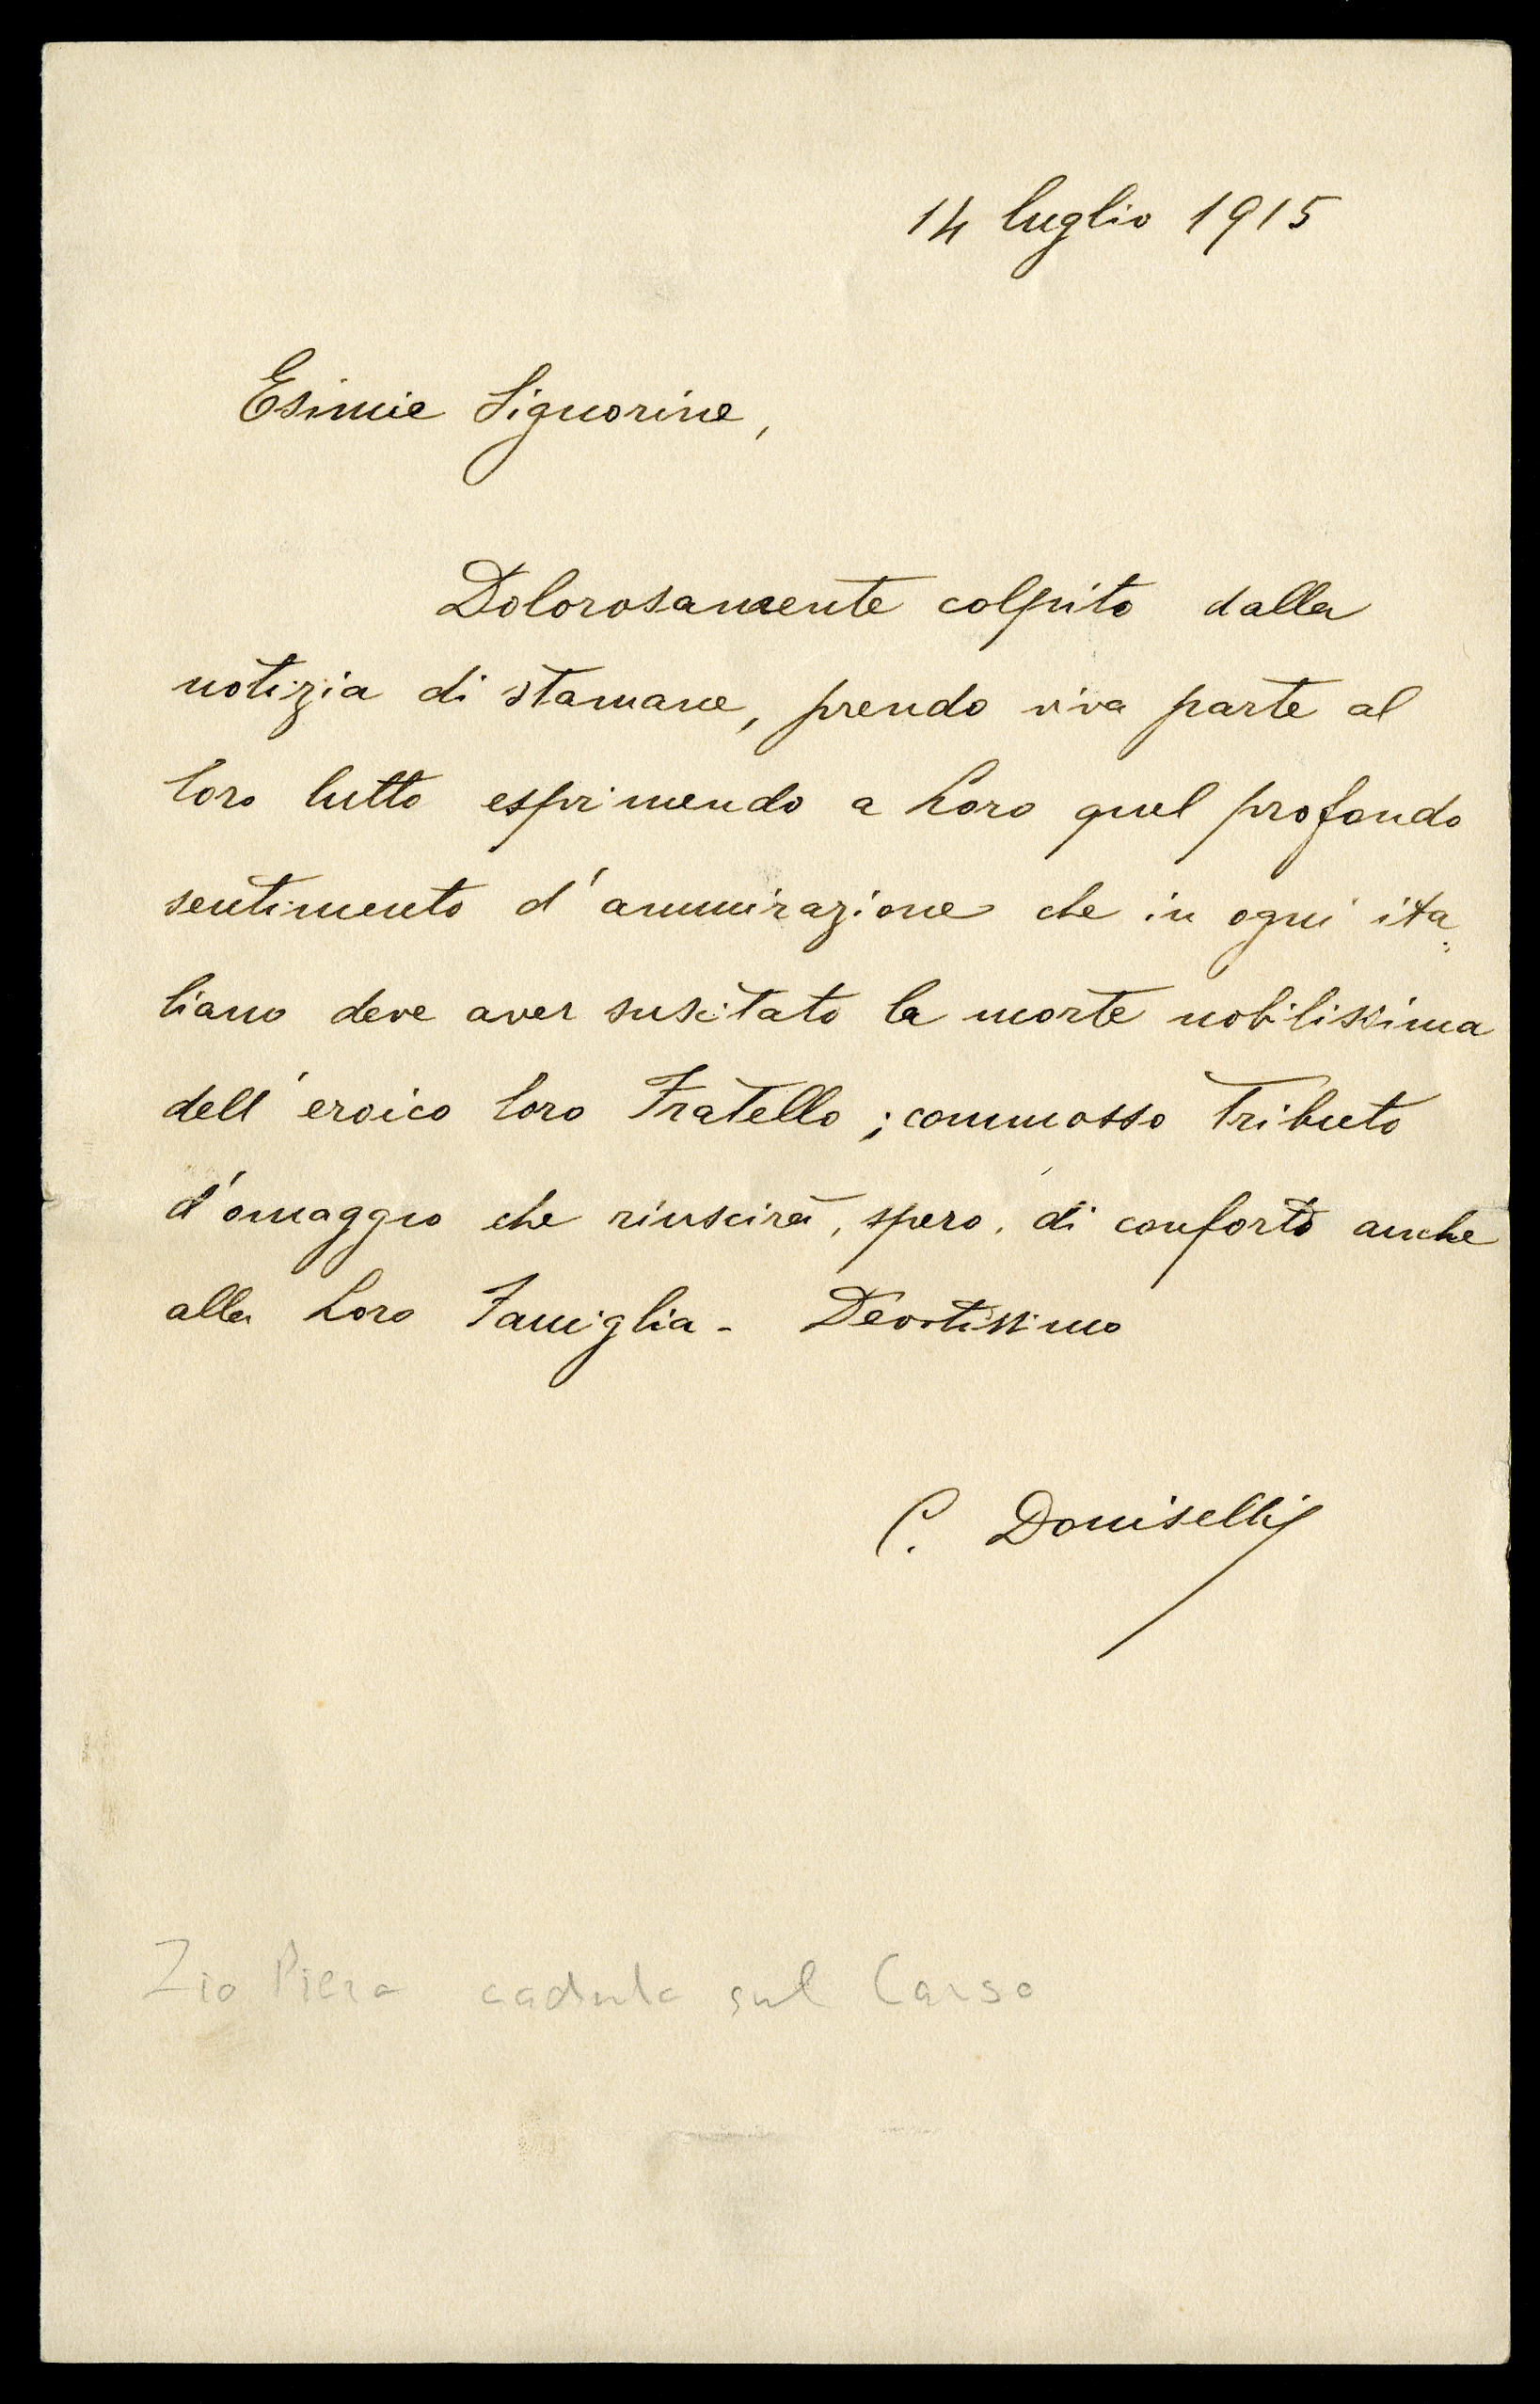 14 luglio 1915
Esimie Signorine,
Dolorosamente colpito dalla
notizia di stamane, prendo viva parte al
loro lutto esprimendo a Loro quel profondo
sentimento d'ammirazione che in ogni ita=
liano deve aver suscitato la morte nobilissima
dell'eroico loro Fratello; commosso tributo
d'omaggio che riuscirà, spero, di conforto anche
alla Loro Famiglia - Devotissimo
C. Doniselli
Zio Piero caduto sul Carso